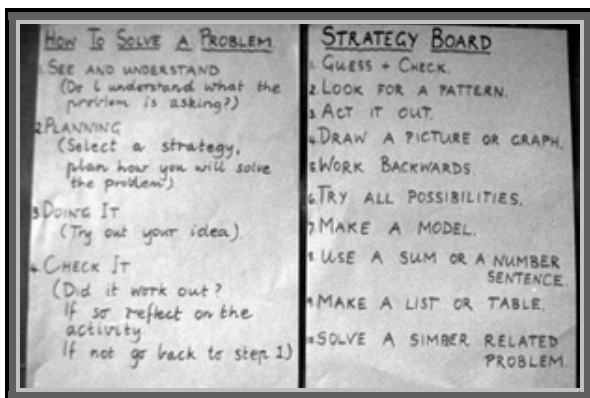 HOW TO SOLVE A PROBLEM
1. SEE AND UNDERSTAND
(Do I understand what the
problem is asking?)
2. PLANNING
(Select a strategy,
plan how you will solve
the problem)
3 DOING IT
(Try out your idea)
4. CHECK IT
(Did it work out?
If so reflect on the
activity.
If not go back to step 1)
STRATEGY BOARD
1. GUESS + CHECK.
2. LOOK FOR A PATTERN.
3 ACT IT OUT.
4. DRAW A PICTURE OR GRAPH.
5. WORK BACKWARDS
6. TRY ALL POSSIBILITIES.
7. MAKE A MODEL.
8 USE A SUM OR A NUMBER
SENTENCE.
9. MAKE A LIST OR TABLE.
10 SOLVE A RELATED
PROBLEM.